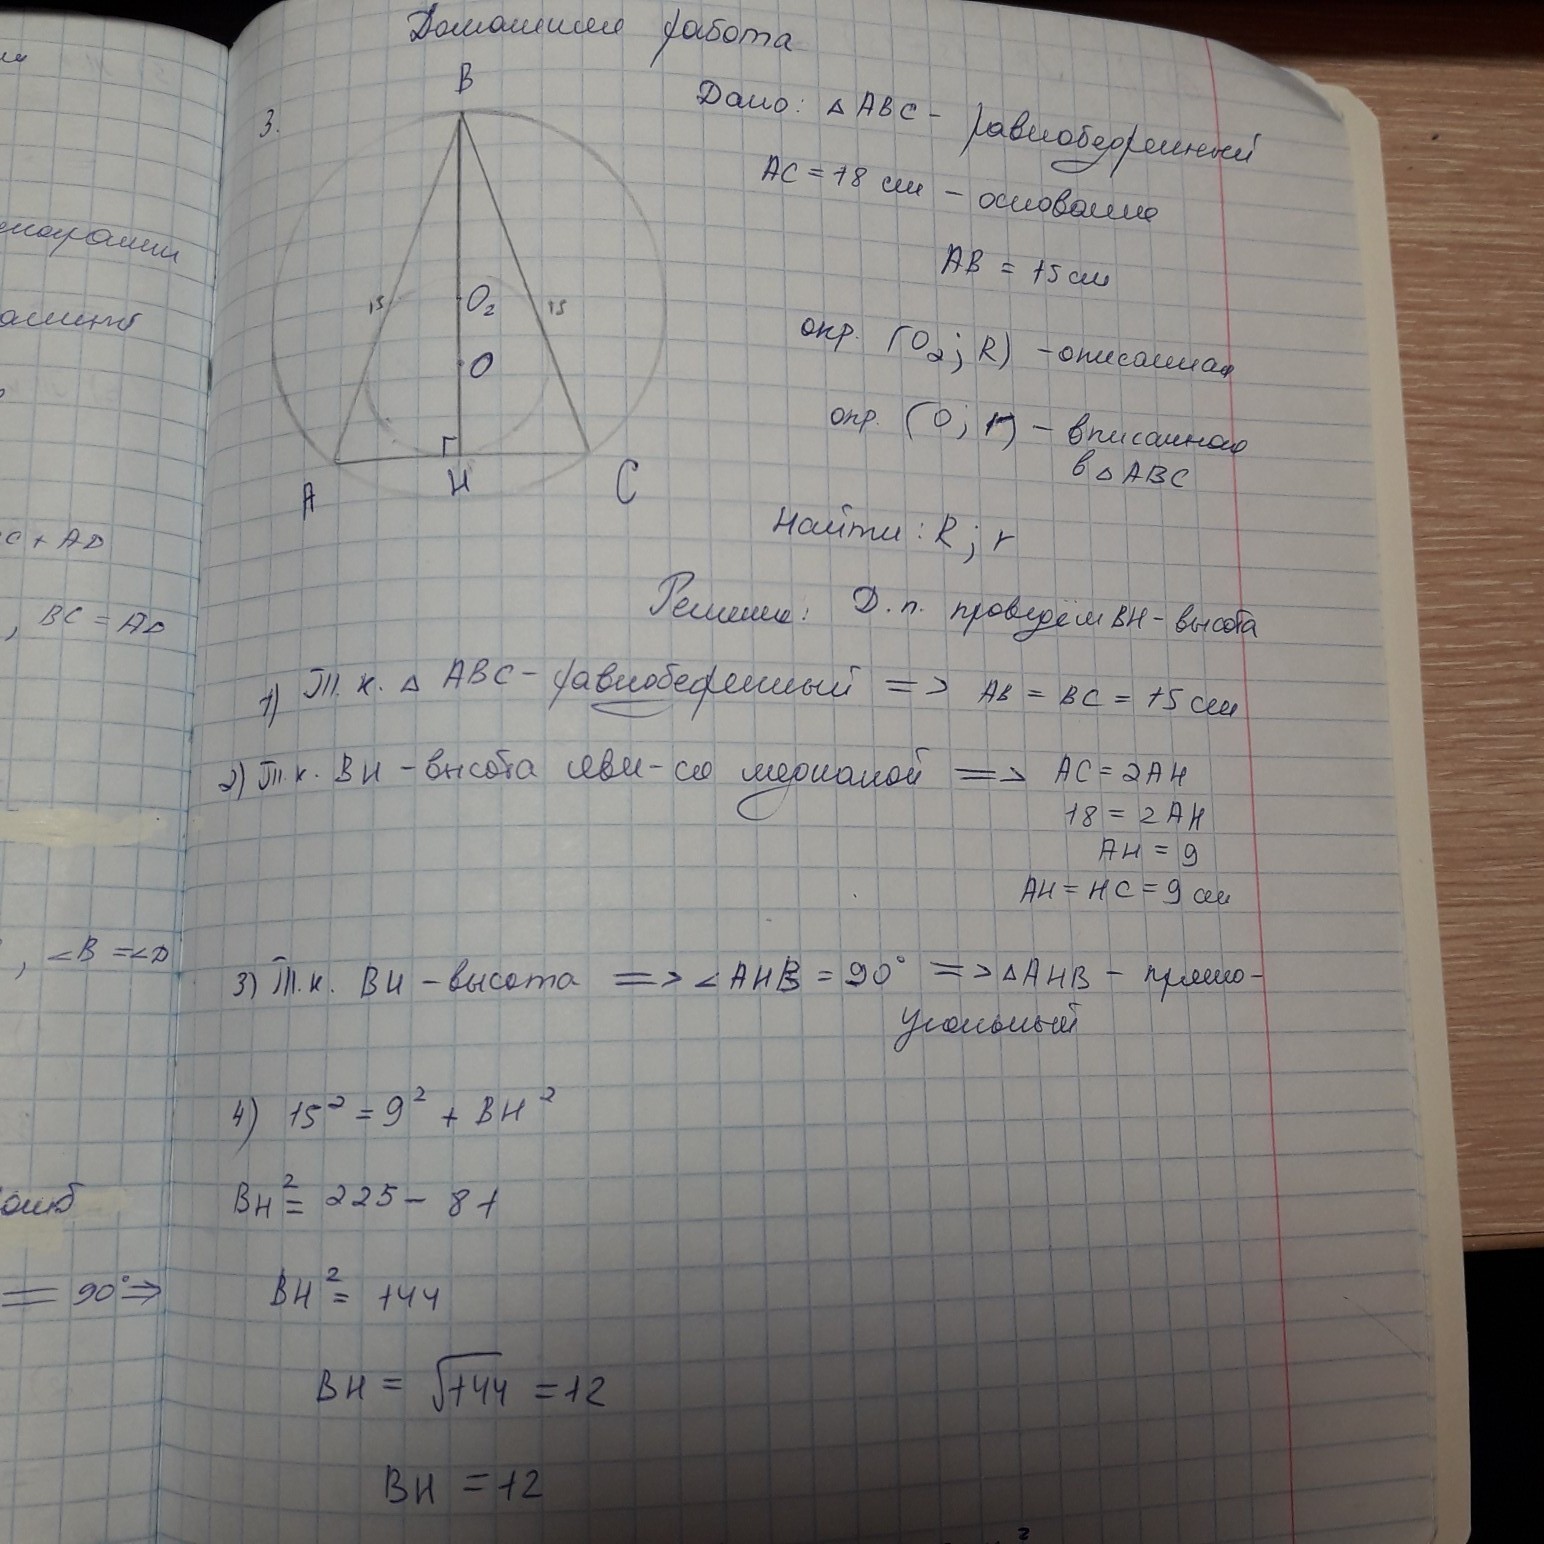 Домашняя работа
3.
B
15
O₂
15
O
A
H
C
Дано: △ABC - равнобедренный
AC = 18 см - основание
AB = 15 см
окр. (O₂; R) - описанная
окр. (O; r) - вписанная
в △ABC
Найти: R; r
Решение: Д.п. проведём BH - высота
1) Т.к. △ABC - равнобедренный => AB = BC = 15 см
2) Т.к. BH - высота явл-ся медианой => AC = 2AH
18 = 2AH
AH = 9
AH = HC = 9 см
3) Т.к. BH - высота => ∠AHB = 90° => △AHB - прямо-
угольный
4) 15² = 9² + BH²
BH² = 225 - 81
BH² = 144
BH = √144 = 12
BH = 12
C + AD
, BC = AD
, ∠B = ∠D
= 90° =>